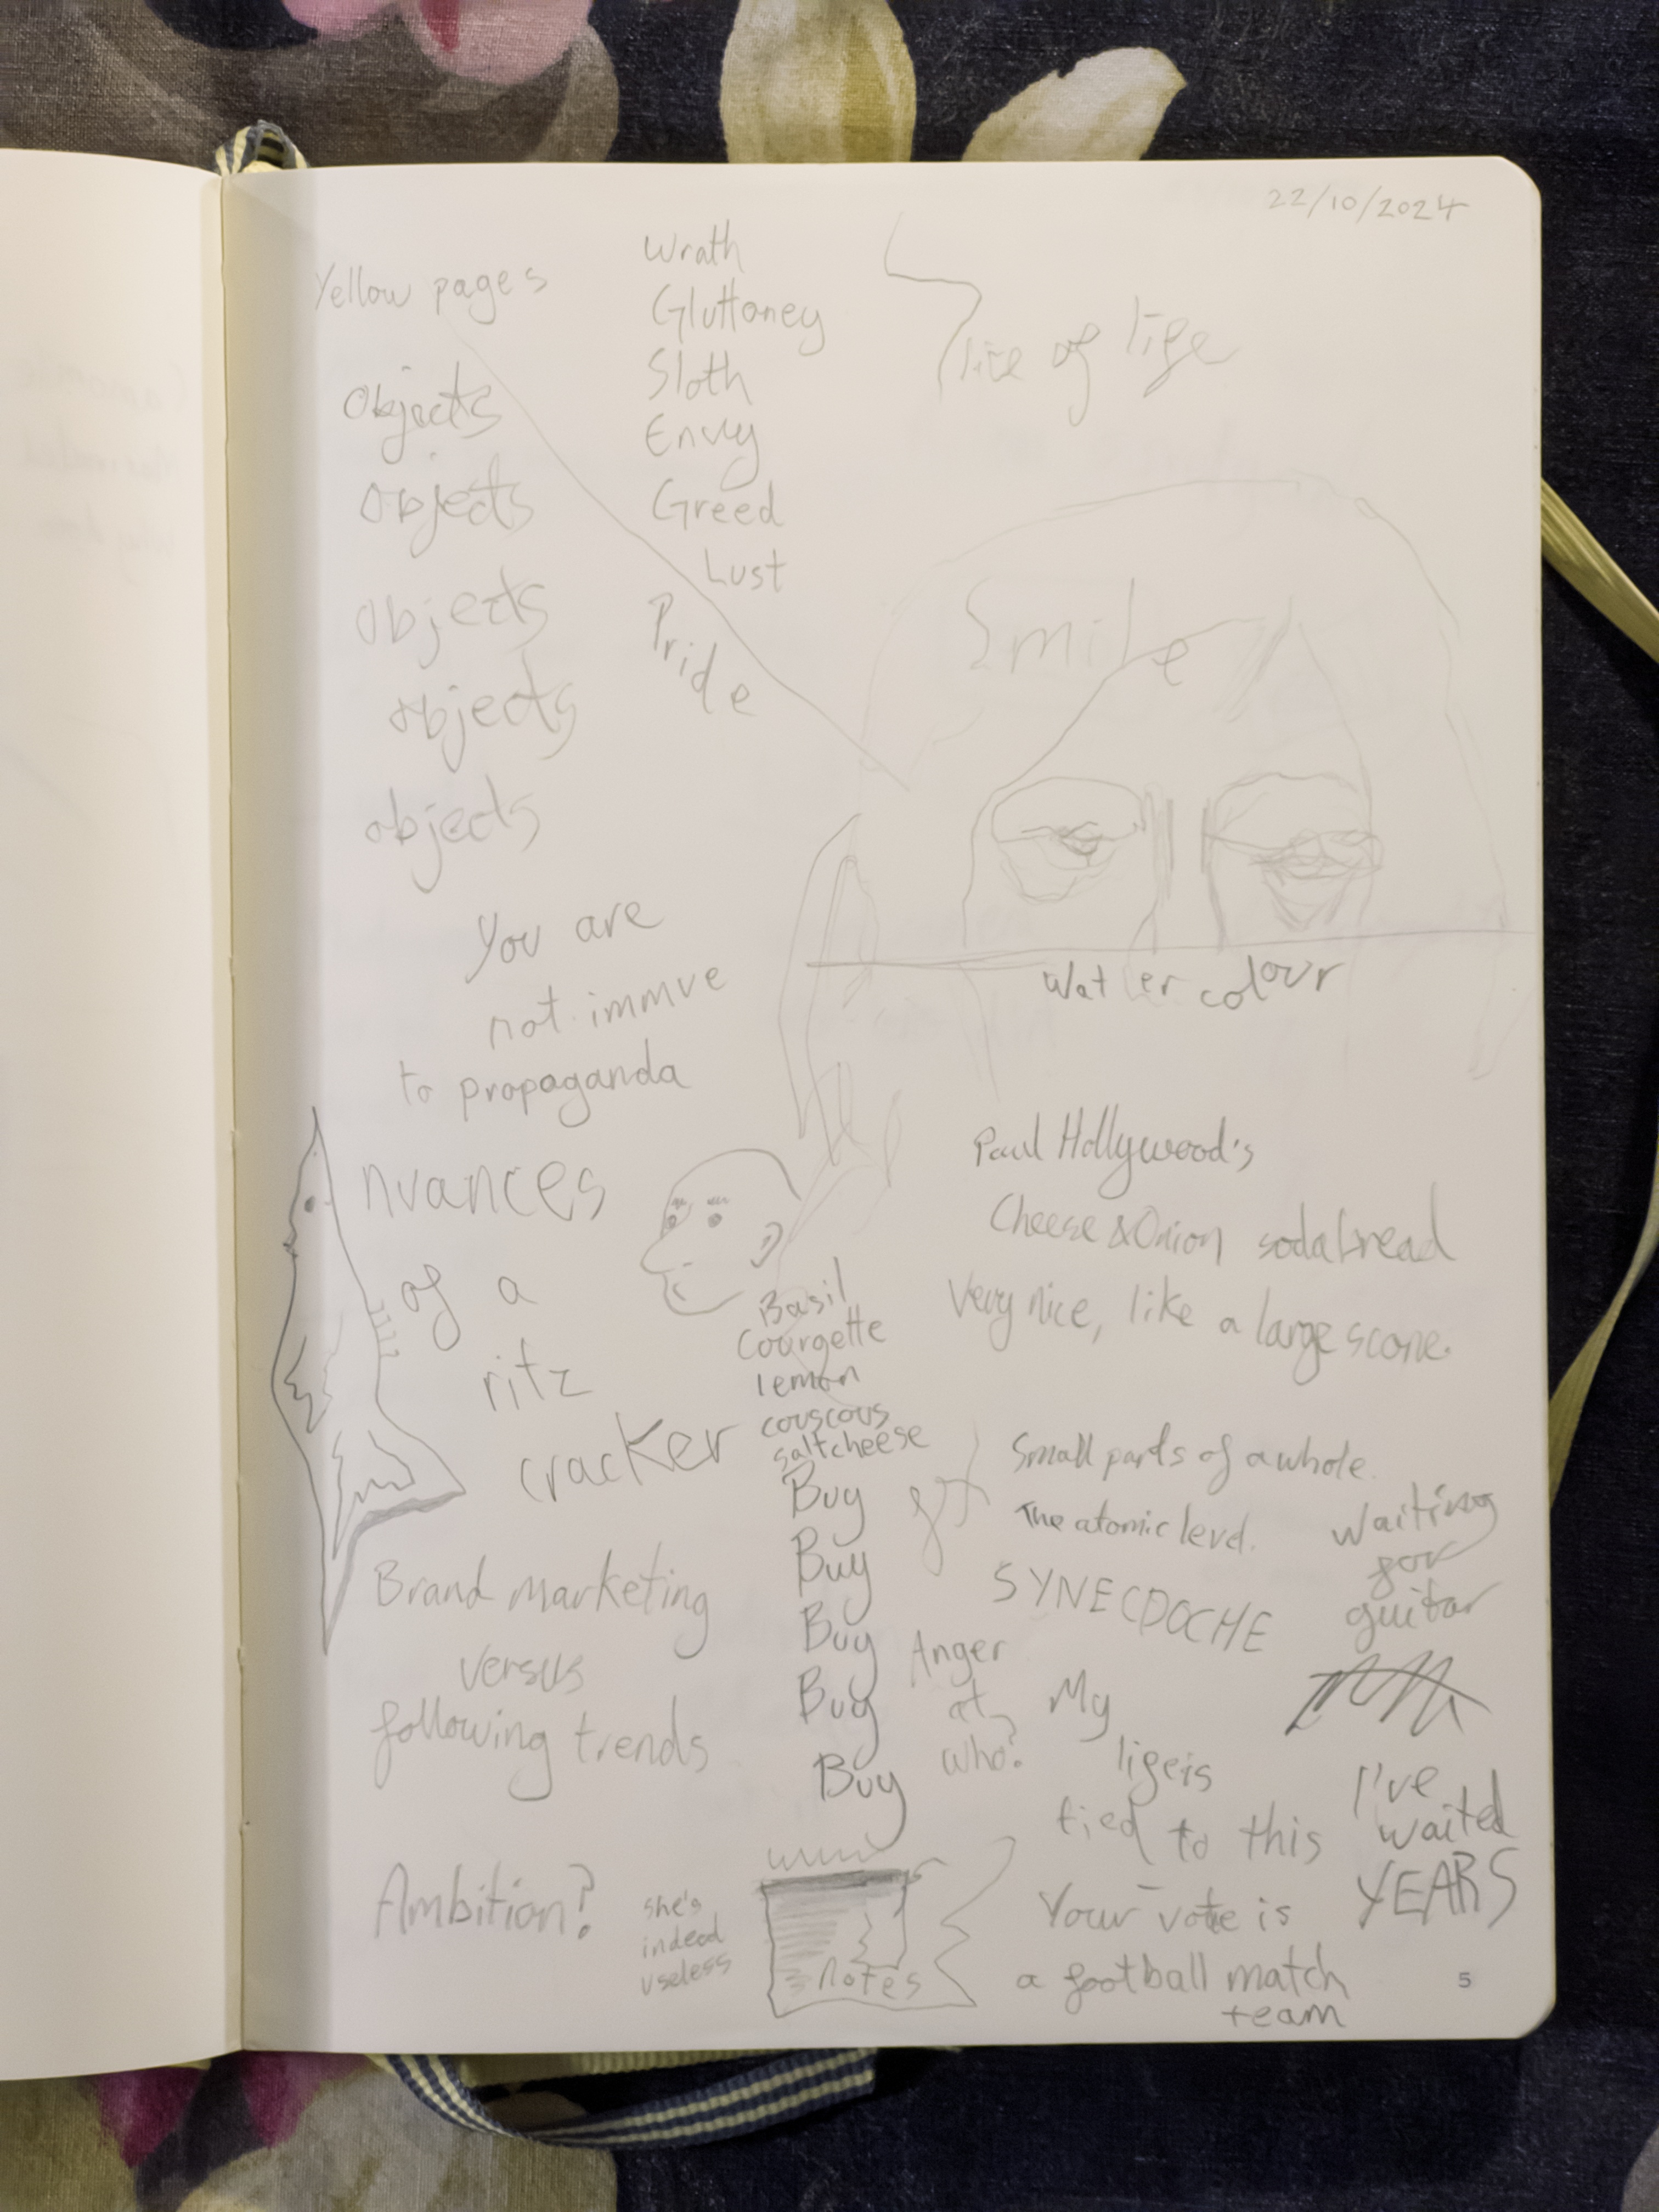 22/10/2024
Yellow pages
objects
objects
objects
objects
objects
Wrath
Gluttoney
Sloth
Envy
Greed
Lust
Pride
Slice of life
Smile
Water colour
You are
not immue
to propaganda
nuances
of a
ritz
cracker
Paul Hollywood's
Cheese & Onion sodabread
Very nice, like a large scone.
Basil
Courgette
lemon
couscous
saltcheese
Buy
Buy
Buy
Buy
Buy
Small parts of a whole.
The atomic level.
SYNECDOCHE
Waiting
for
guitar
I've
waited
YEARS
Brand marketing
versus
following trends
Anger
at
who?
My
life is
tied to this
Your vote is
a football match
team
Ambition?
she's
indeed
useless
notes
5